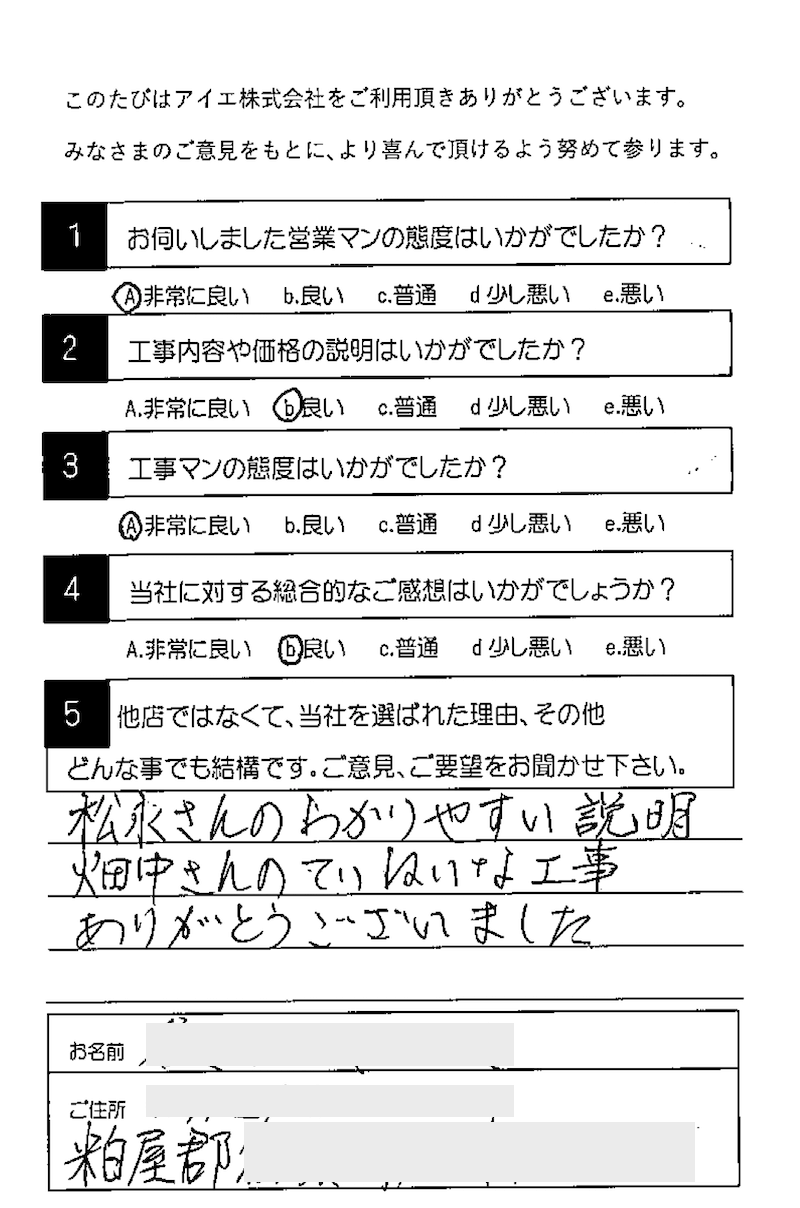 このたびはアイエ株式会社をご利用頂きありがとうございます。
みなさまのご意見をもとに、より喜んで頂けるよう努めて参ります。
1 お伺いしました営業マンの態度はいかがでしたか？
A 非常に良い b.良い c.普通 d 少し悪い e.悪い
2 工事内容や価格の説明はいかがでしたか？
A.非常に良い b 良い c.普通 d 少し悪い e.悪い
3 工事マンの態度はいかがでしたか？
A 非常に良い b.良い c.普通 d 少し悪い e.悪い
4 当社に対する総合的なご感想はいかがでしょうか？
A.非常に良い b 良い c.普通 d 少し悪い e.悪い
5 他店ではなくて、当社を選ばれた理由、その他
どんな事でも結構です。ご意見、ご要望をお聞かせ下さい。
松永さんのわかりやすい説明
畑中さんのていねいな工事
ありがとうございました
お名前
ご住所
粕屋郡